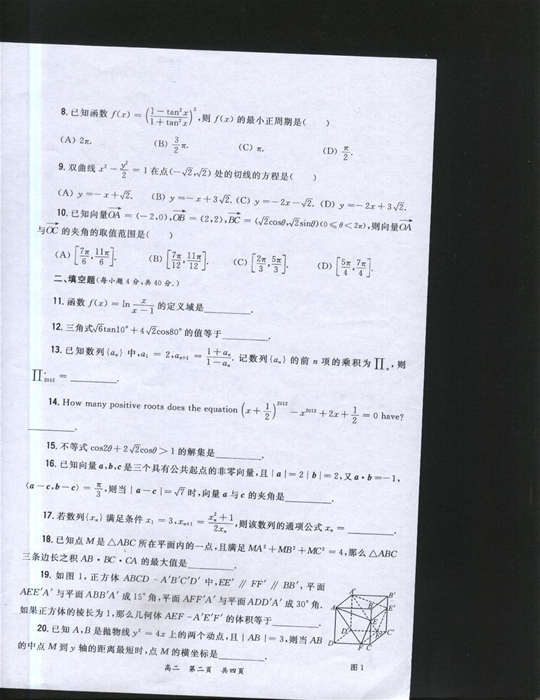 8. 已知函数 f(x) = ((1 − tan²x)/(1 + tan²x))², 则 f(x) 的最小正周期是( )
(A) 2π. (B) 3/2 π. (C) π. (D) π/2.
9. 双曲线 x² − y²/2 = 1 在点(−√2,√2) 处的切线的方程是( )
(A) y = −x + √2. (B) y = −x + 3√2. (C) y = −2x − √2. (D) y = −2x + 3√2.
10. 已知向量OA = (−2,0), OB = (2,2), BC = (√2cosθ,√2sinθ)(0 ≤ θ < 2π), 则向量OA
与OC 的夹角的取值范围是( )
(A) [7π/6, 11π/6]. (B) [7π/12, 11π/12]. (C) [2π/3, 5π/3]. (D) [5π/4, 7π/4].
二、填空题(每小题 4 分,共 40 分.)
11. 函数 f(x) = ln x/(x − 1) 的定义域是________.
12. 三角式√6tan10° + 4√2cos80° 的值等于________.
13. 已知数列{aₙ} 中, a₁ = 2, aₙ₊₁ = (1 + aₙ)/(1 − aₙ). 记数列{aₙ} 的前 n 项的乘积为 ∏ₙ, 则
∏₂₀₁₂ = ________.
14. How many positive roots does the equation (x + 1/2)²⁰¹² − x²⁰¹² + 2x + 1/2 = 0 have?
________.
15. 不等式 cos2θ + 2√2cosθ > 1 的解集是________.
16. 已知向量 a,b,c 是三个具有公共起点的非零向量, 且 | a | = 2 | b | = 2, 又 a · b = −1,
⟨a − c, b − c⟩ = π/3, 则当 | a − c | = √7 时, 向量 a 与 c 的夹角是________.
17. 若数列{xₙ} 满足条件 x₁ = 3, xₙ₊₁ = (xₙ² + 1)/(2xₙ), 则该数列的通项公式 xₙ = ________.
18. 已知点 M 是 △ABC 所在平面内的一点, 且满足 MA² + MB² + MC² = 4, 那么 △ABC
三条边长之积 AB · BC · CA 的最大值是________.
19. 如图 1, 正方体 ABCD − A′B′C′D′ 中, EE′ ∥ FF′ ∥ BB′, 平面
AEE′A′ 与平面 ABB′A′ 成 15° 角, 平面 AFF′A′ 与平面 ADD′A′ 成 30° 角.
如果正方体的棱长为 1, 那么几何体 AEF − A′E′F′ 的体积等于________.
20. 已知 A,B 是抛物线 y² = 4x 上的两个动点, 且 | AB | = 3, 则当 AB
的中点 M 到 y 轴的距离最短时, 点 M 的横坐标是________.
图 1
高二 第二页 共四页